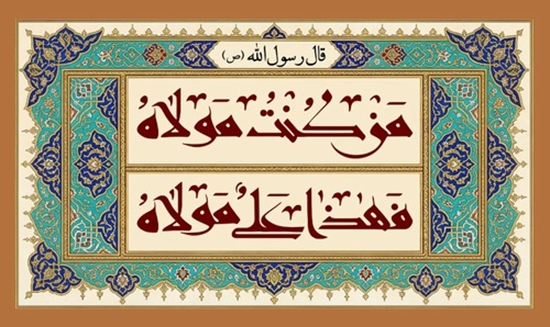 قال رسول الله (ص)
مَن كُنتُ مَولاهُ
فَهذا عَلیُ مَولاهُ